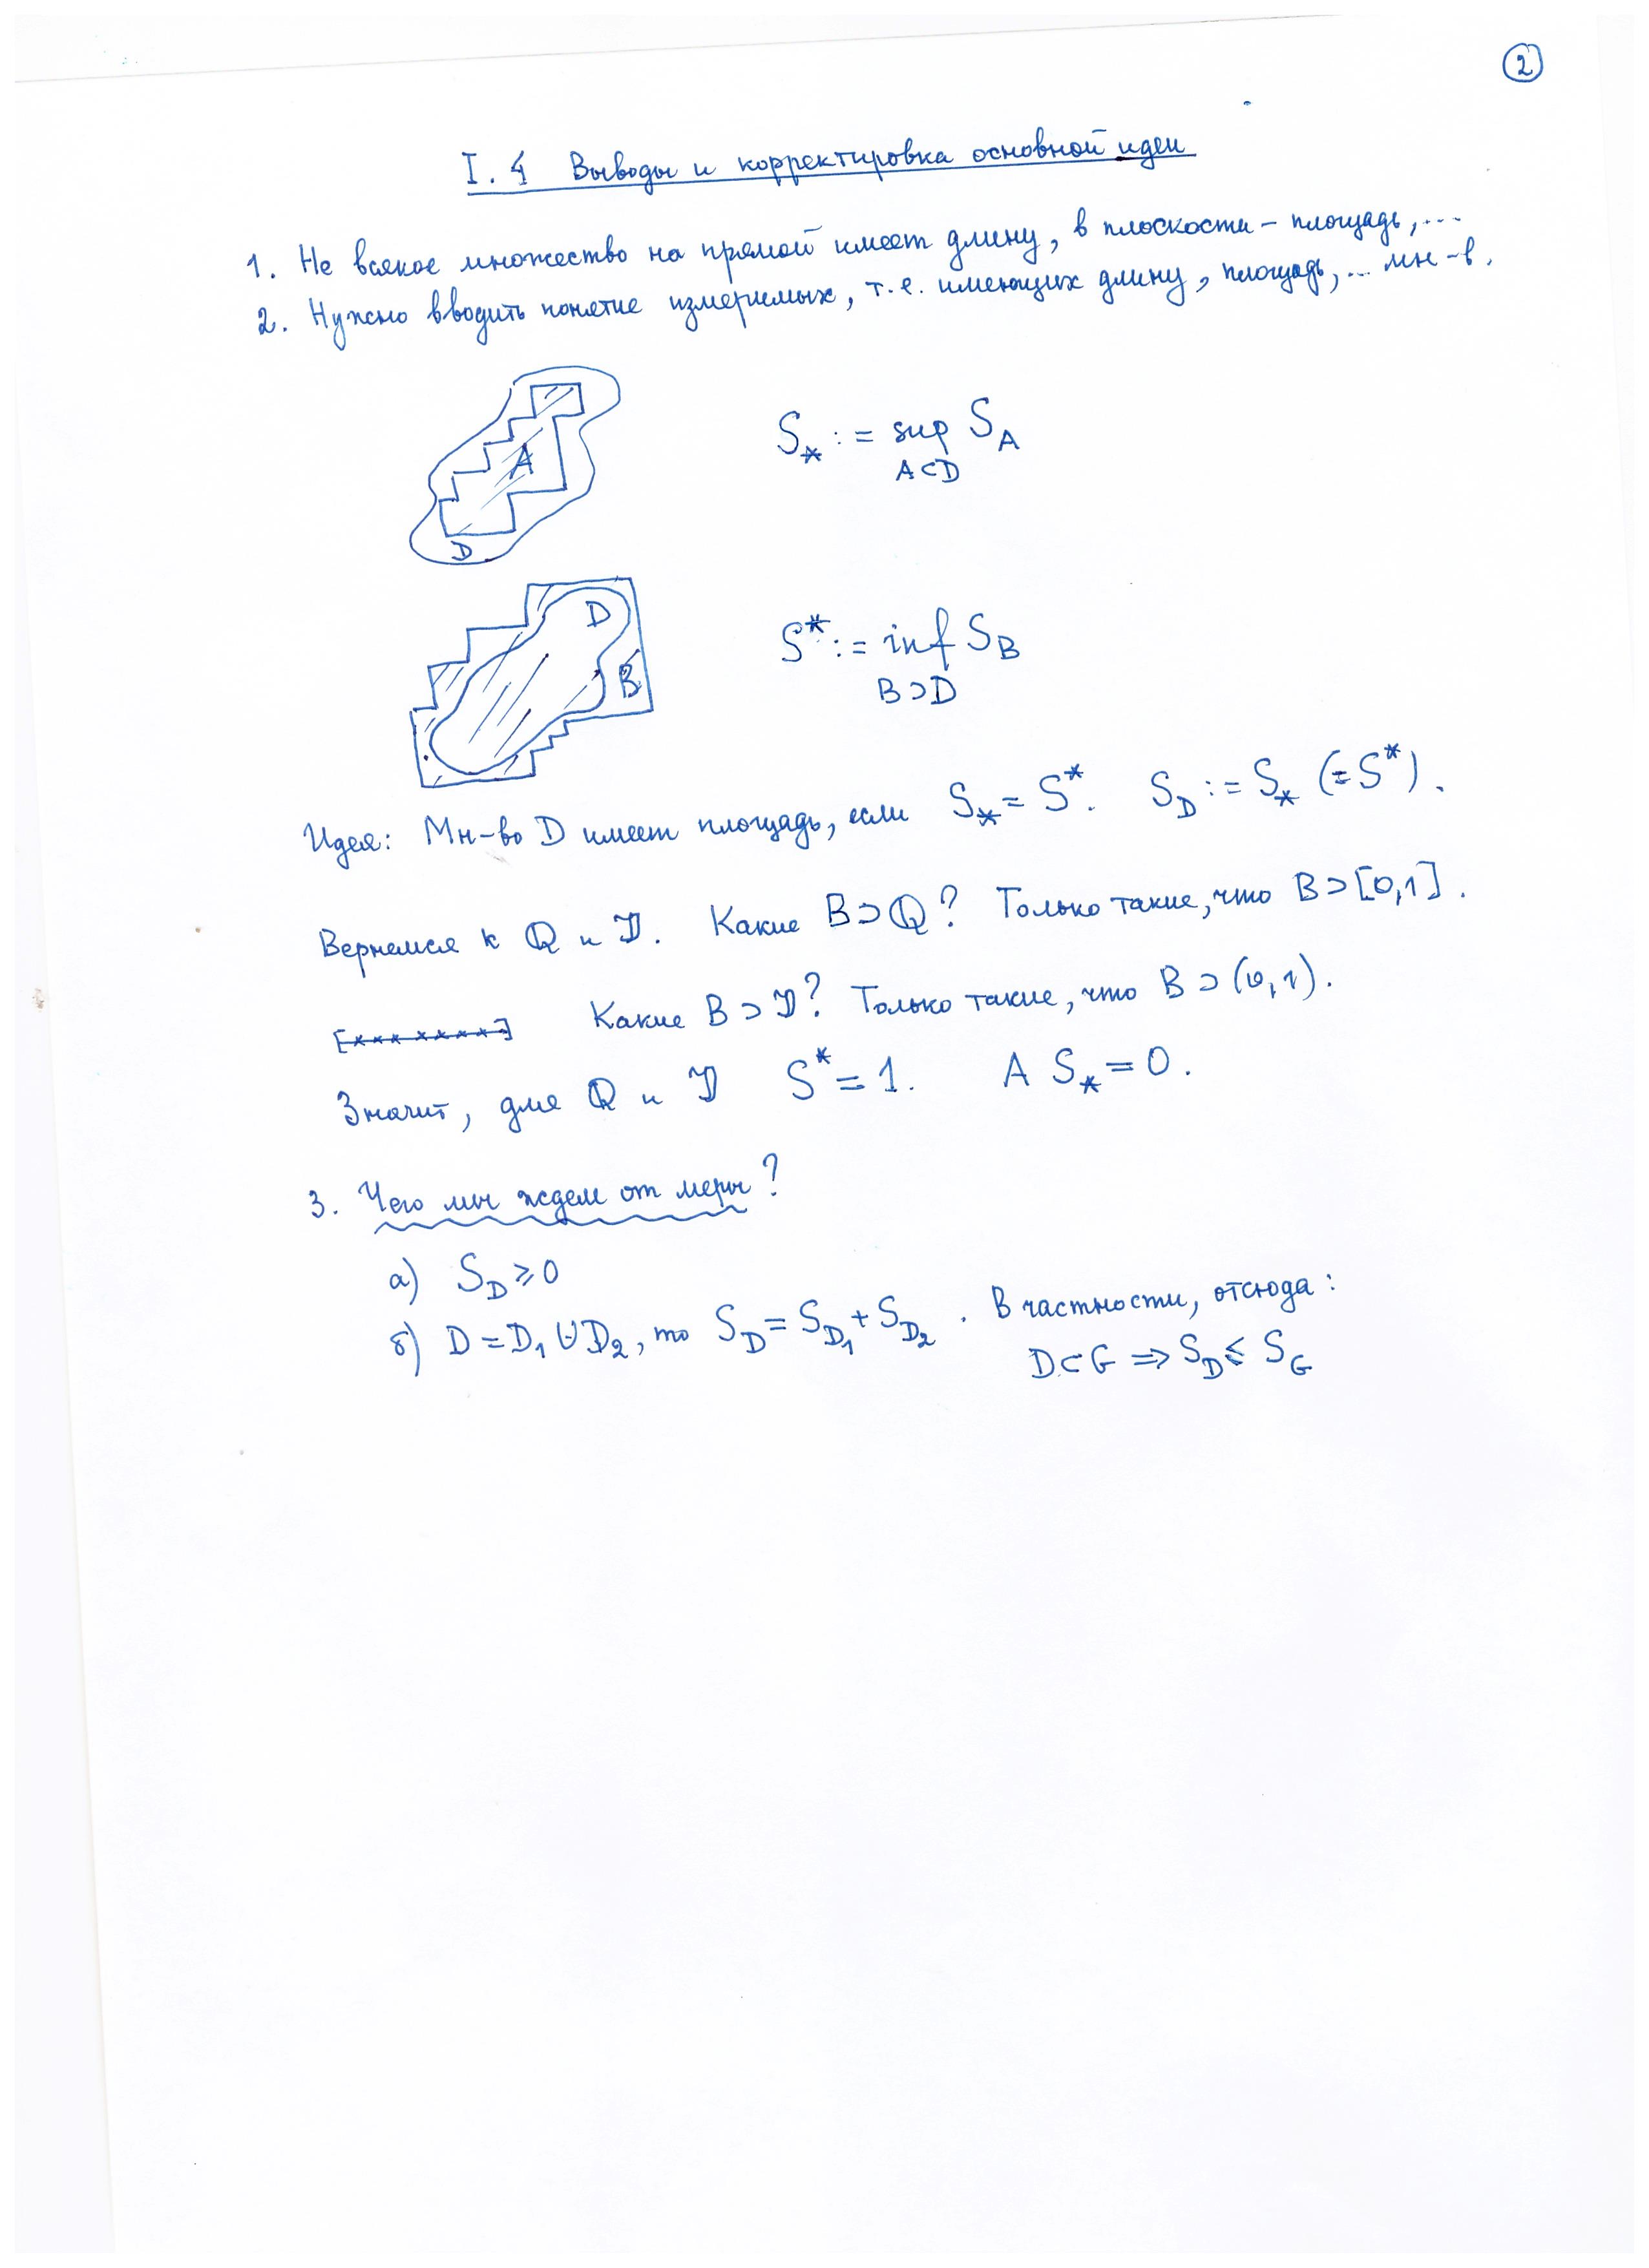 2
I. 4 Выводы и корректировка основной идеи
1. Не всякое множество на прямой имеет длину, в плоскости – площадь, ...
2. Нужно вводить понятие измеримых, т.е. имеющих длину, площадь, ... мн-в.
A
D
S_* := sup S_A
A⊂D
D
B
S^* := inf S_B
B⊃D
Идея: Мн-во D имеет площадь, если S_* = S^*. S_D := S_* (= S^*).
Вернемся к ℚ и 𝕀. Какие B⊃ℚ? Только такие, что B⊃[0,1].
[××× ××××] Какие B⊃𝕀? Только такие, что B⊃(0,1).
Значит, для ℚ и 𝕀 S^* = 1. А S_* = 0.
3. Чего мы ждем от меры?
а) S_D ⩾ 0
б) D = D_1 ⊍ D_2, то S_D = S_{D_1} + S_{D_2}. В частности, отсюда:
D⊂G ⇒ S_D ⩽ S_G